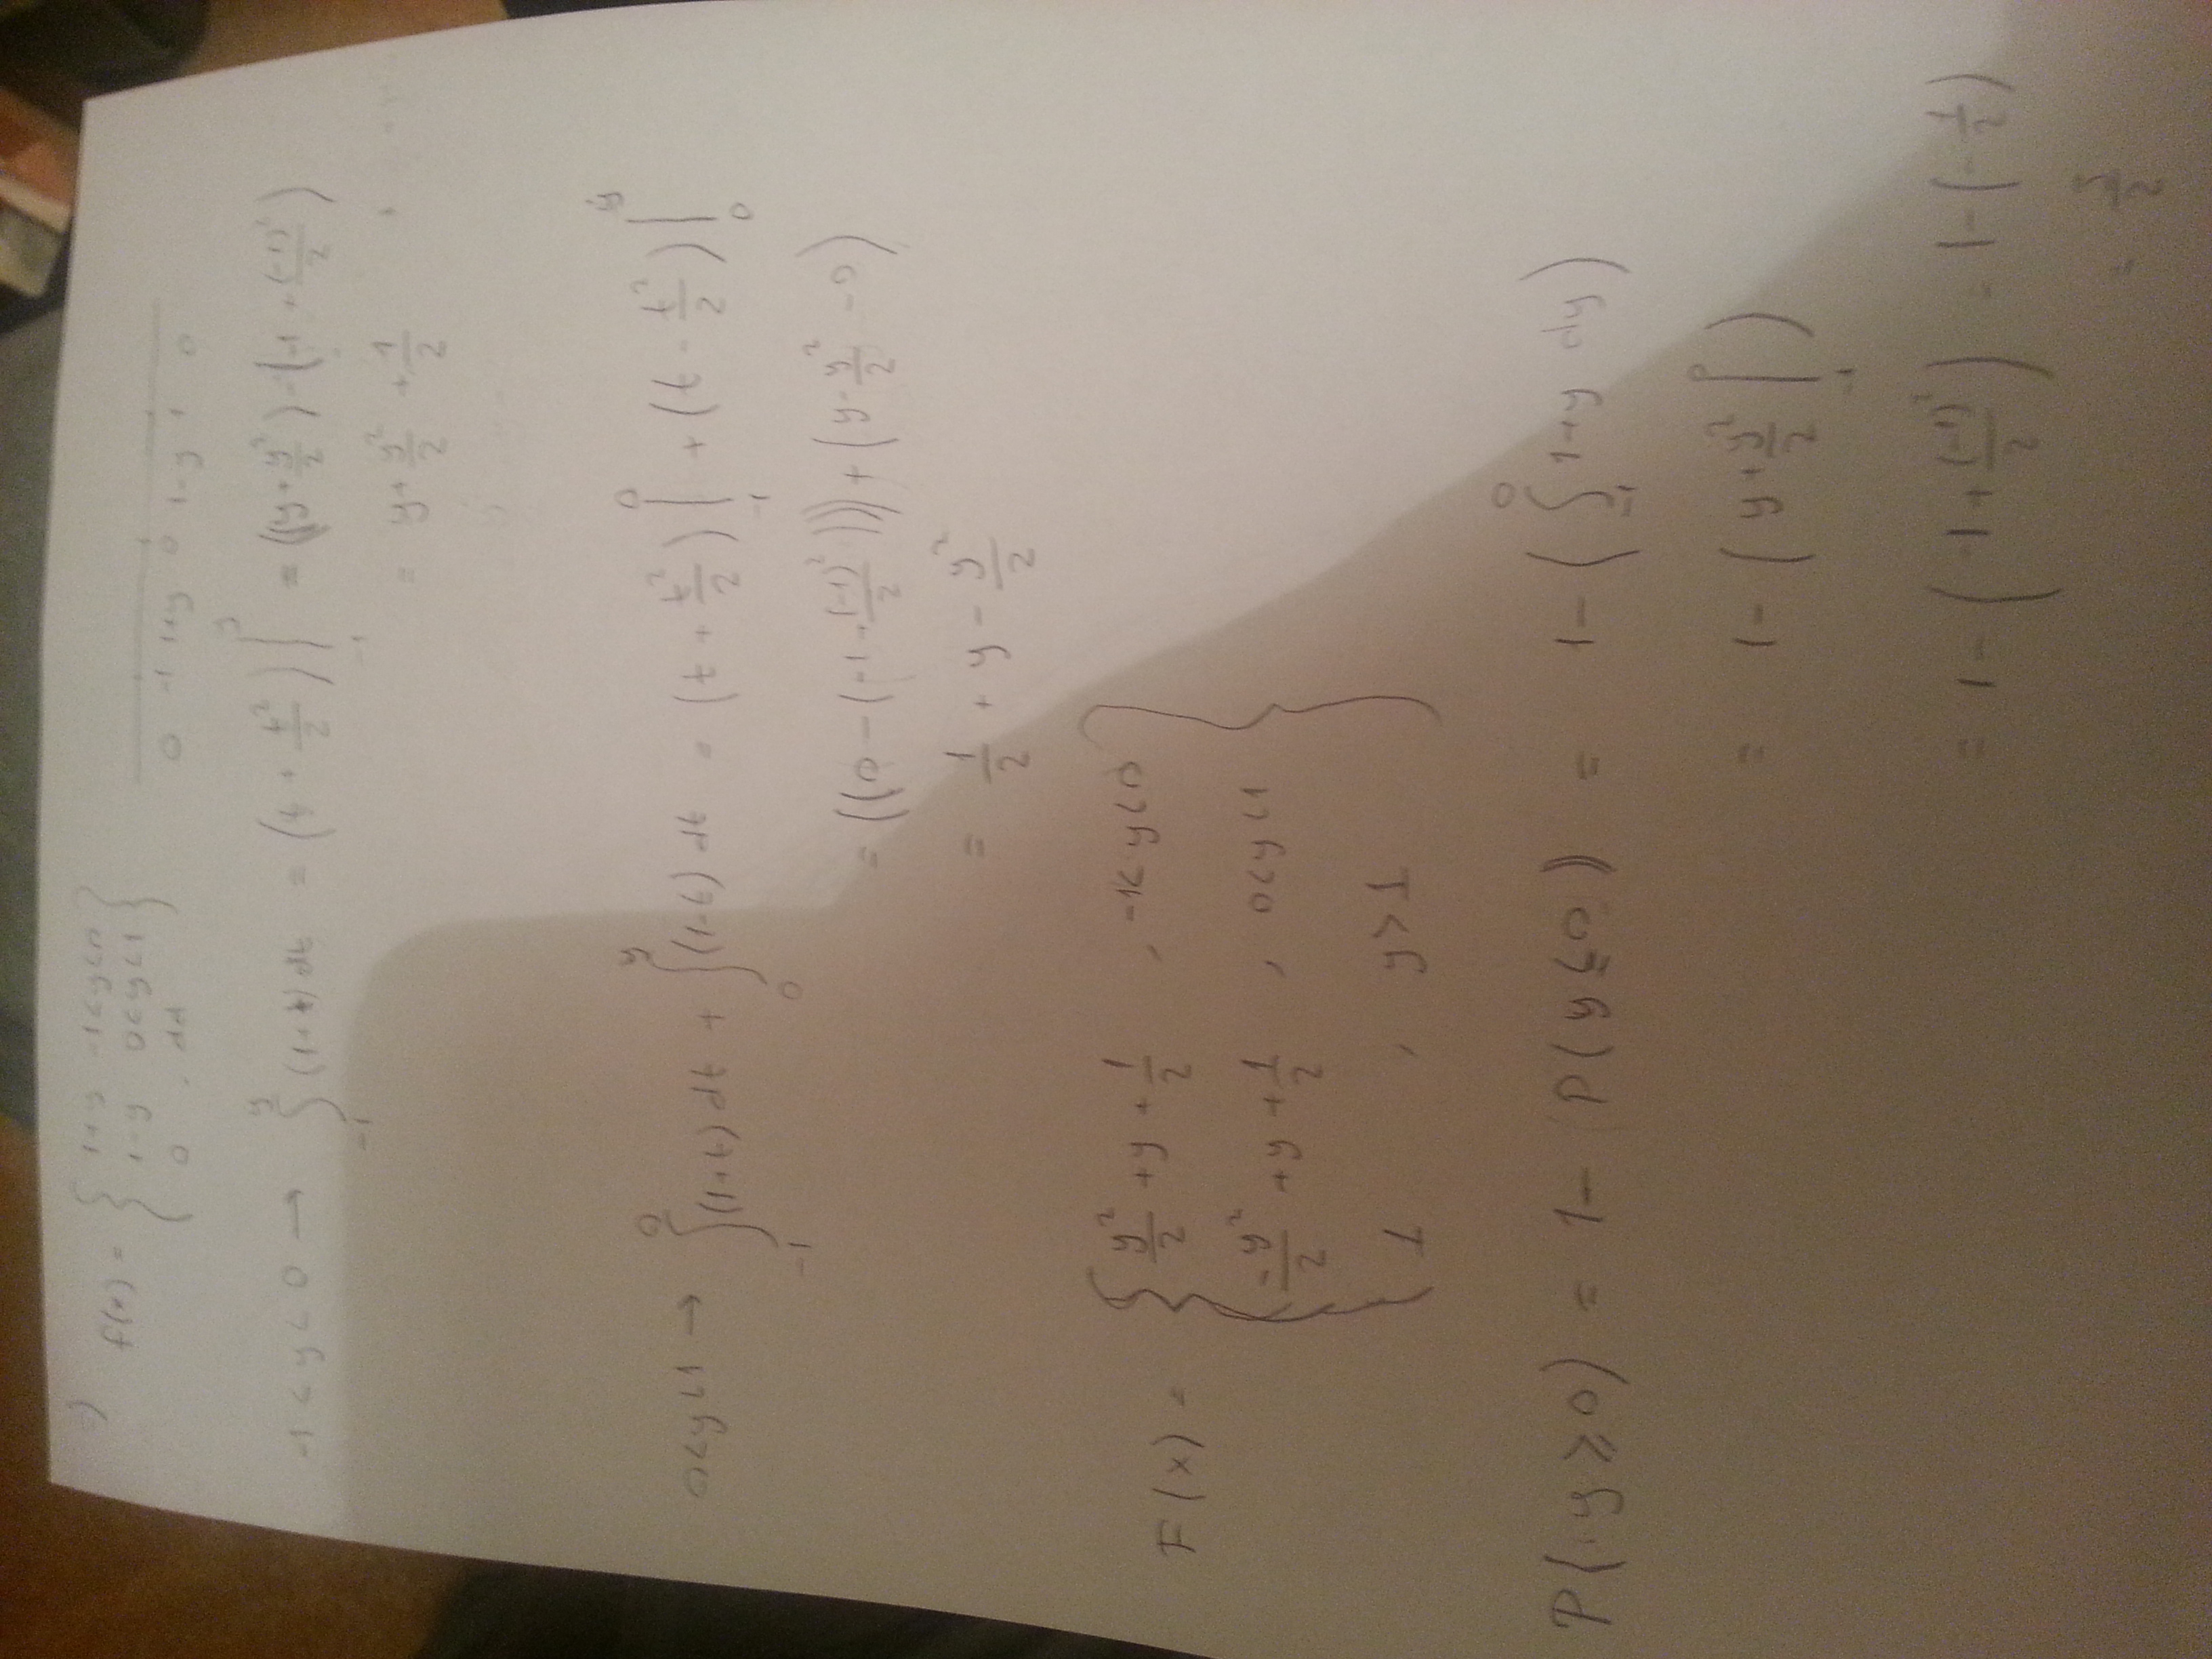 c)
f(x) = { 1+y -1<y<0
1-y 0<y<1
0 , dd }
0 -1 1+y 0 1-y 1 0
-1 < y < 0 → ∫_{-1}^{y} (1+t) dt = (t + t²/2) |_{-1}^{y} = (y + y²/2) - (-1 + (-1)²/2)
= y + y²/2 + 1/2
0<y<1 → ∫_{-1}^{0} (1+t) dt + ∫_{0}^{y} (1-t) dt = (t + t²/2) |_{-1}^{0} + (t - t²/2) |_{0}^{y}
= ((0 - (-1 + (-1)²/2))) + (y - y²/2 - 0)
= 1/2 + y - y²/2
F(x) = { y²/2 + y + 1/2 , -1< y<0
-y²/2 + y + 1/2 , 0<y<1
1 , y>1 }
P(y ≥ 0) = 1 - P(y ≤ 0) = 1 - (∫_{-1}^{0} 1+y dy)
= 1 - (y + y²/2 |_{-1}^{0})
= 1 - (-1 + (-1)²/2) = 1 - (-1/2)